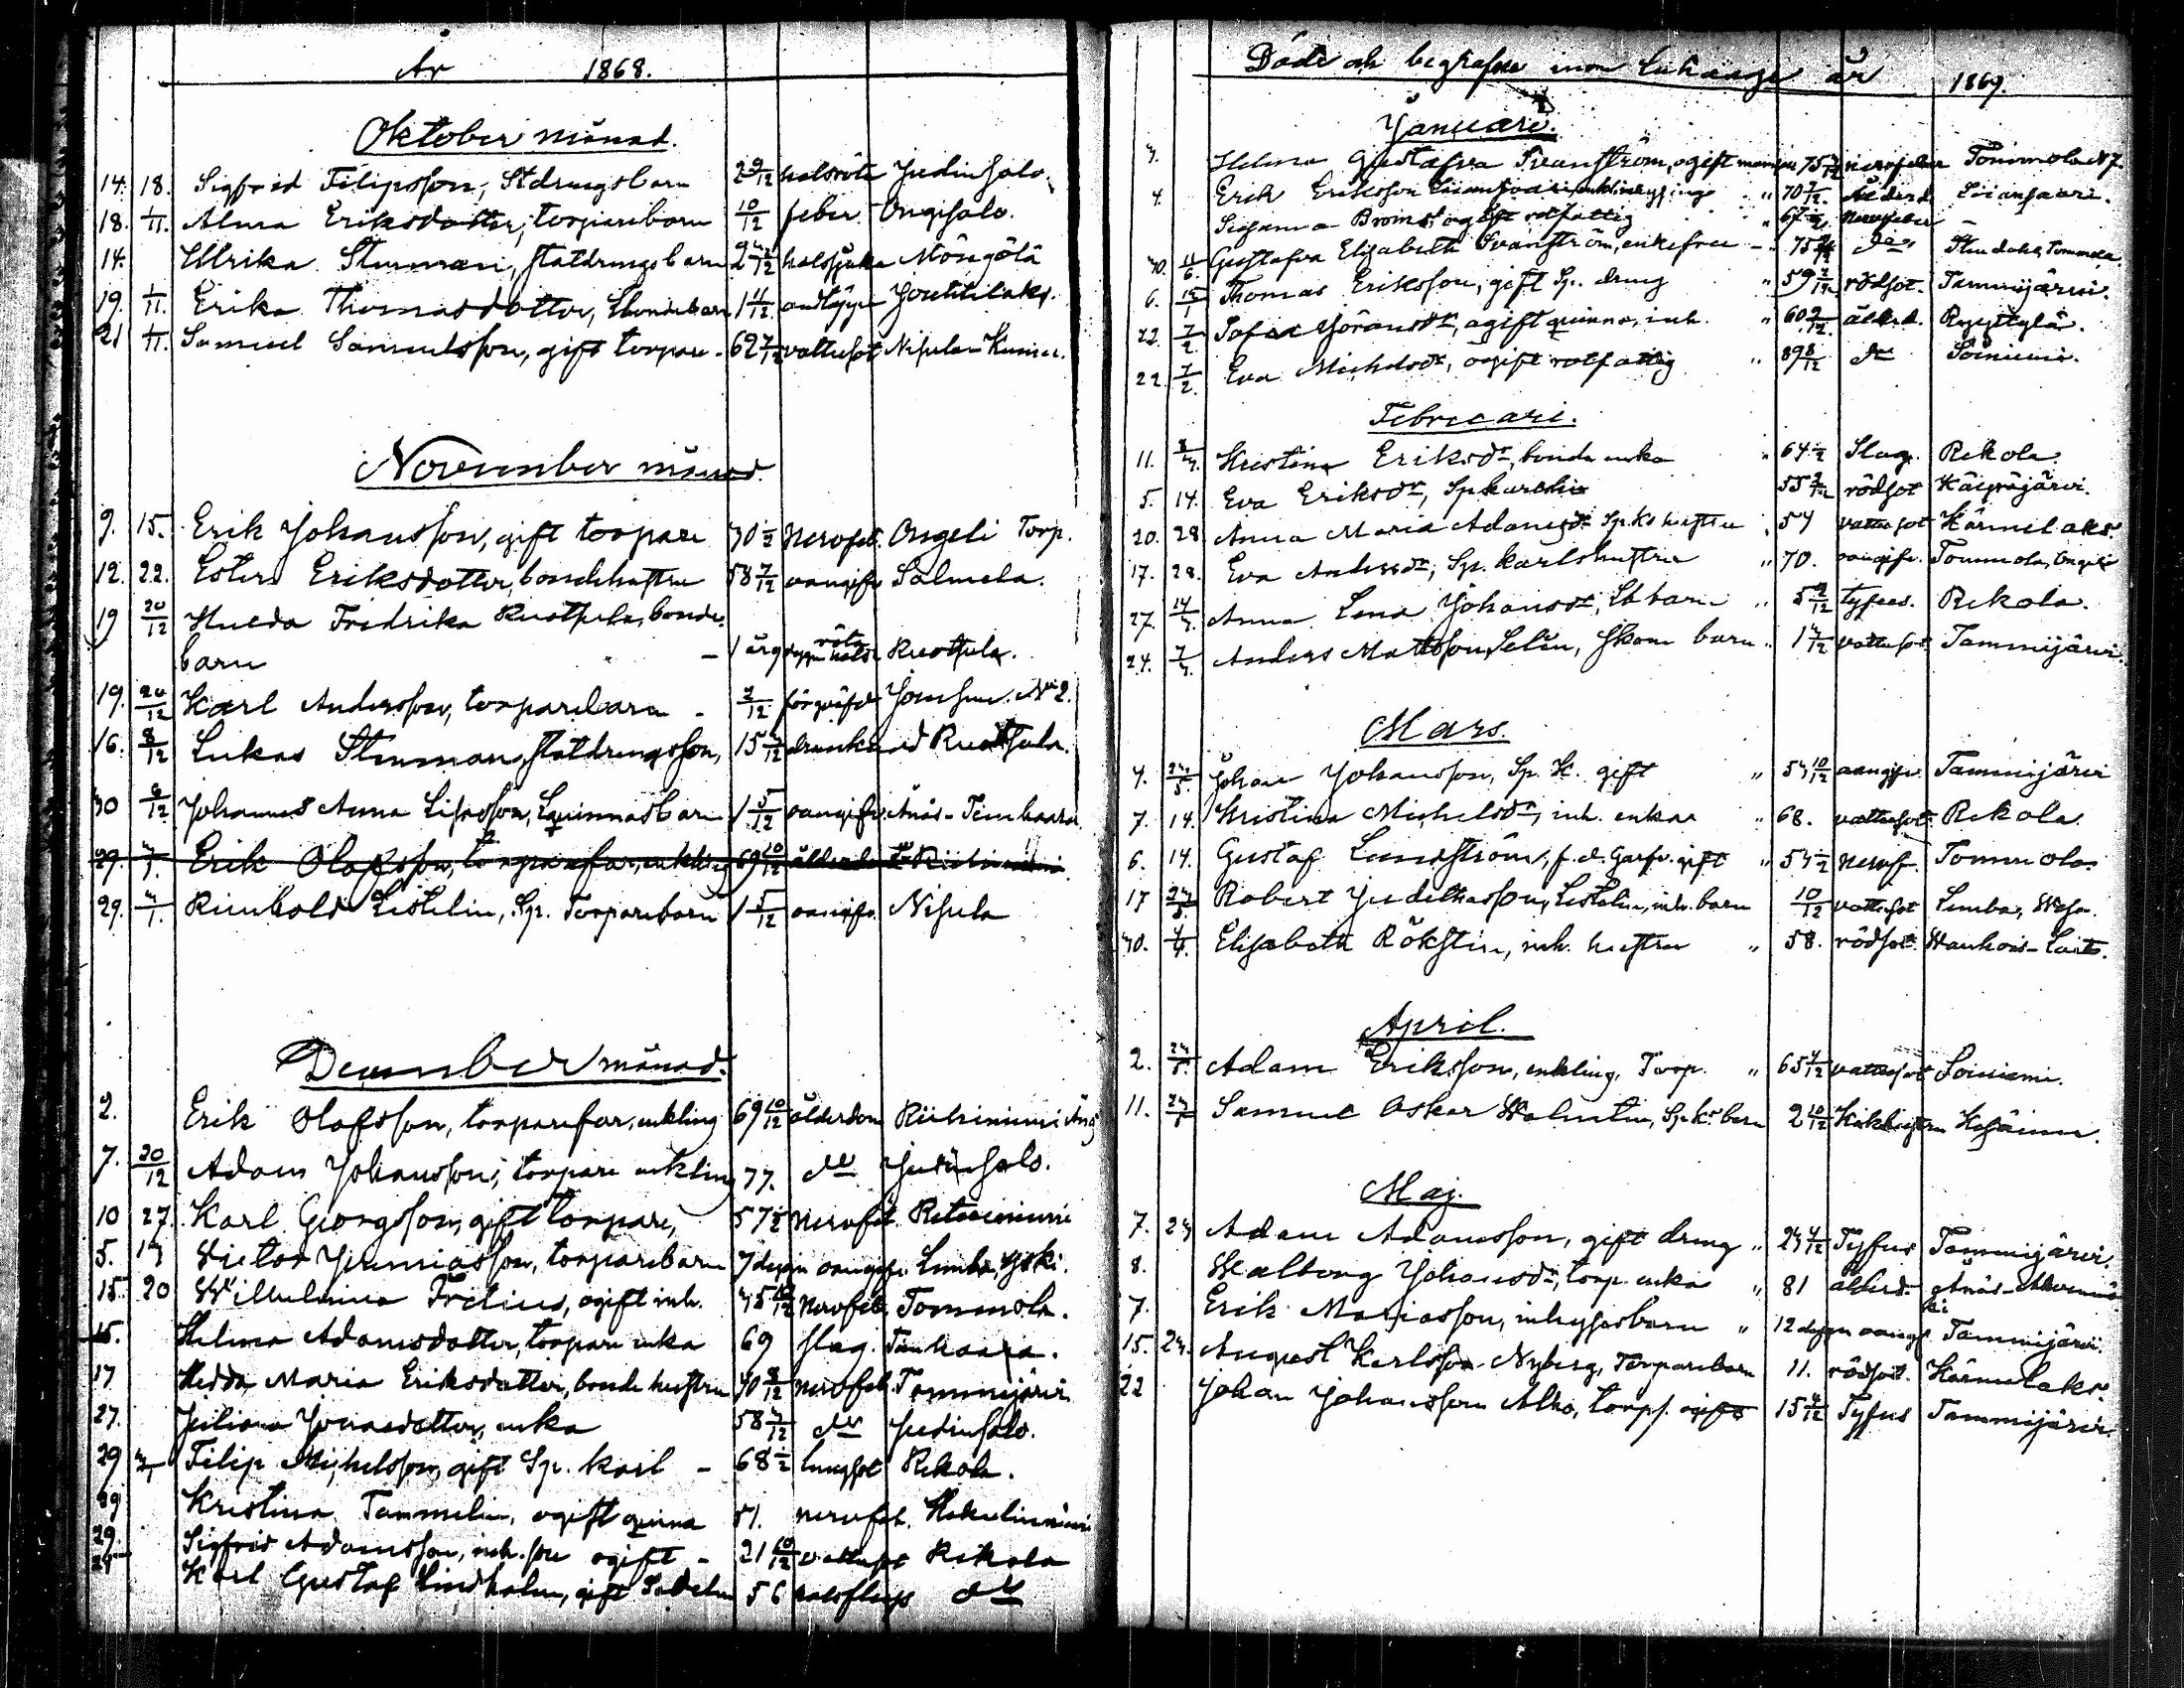 År 1868.
Oktober månad.
14. 18. Sigfrid Filipsson, Stdrängsbarn 2 9/12 halsröta Judinsalo.
18. 1/11. Alma Eriksdotter, torparebarn 10/12 feber Ongisalo.
14. Ulrika Stenman, statdrängsbarn halssjuka
19. 1/11. Erika Thomasdotter, 1 11/12 Joutsilaks.
21 1/11. Samuel Samuelsson, gift torpare 62 7/12 vattusot Nisula
November månad.
9. 15. Erik Johansson, gift torpare 30 1/2 Nervfeb. Ongeli Torp.
12. 22. Ester Eriksdotter, bondehustru 58 7/12 oangifv. Salmela.
19 20/12 Hulda Fredrika Ruotsula, bonde-
barn 1 år 9 dygn halsröta Ruotsula.
19. 20/12 Karl Andersson, torparebarn - 2/12 förqväfd No 2.
16. 8/12 Lukas Stenman, statdrängsson, 15 3/12 drunknad Ruotsula.
30 6/12 Johannes Anna Lisasson, Lqvinnasbarn 1 5/12 oangifv.
29. 3/1. Erik Olofsson, torparefar, enkling 69 10/12 ålderdom
29. 3/1. Reinhold Listelin, Sp. Torparebarn 1 5/12 oangifv. Nisula
December månad.
2. Erik Olofsson, torparefar, enkling 69 10/12 ålderdom Riihiniemi
7. 20/12 Adam Johansson, torpare enkling 77. do Judinsalo.
10 27. Karl Georgsson, gift torpare, 57 1/2 Nervfeb.
5. 13 Victor Jeremiasson, torparebarn 7 dygn oangifv.
15. 20 Wilhelmina Fretius, ogift inh. 35 10/12 Nervfeb. Tommola.
15. Helena Adamsdotter, torpare enka 69 slag.
17 Hedda Maria Eriksdotter, bonde hustru 30 8/12 nervfeb. Tammijärvi
27. Juliana Jonasdotter, enka 58 3/12 do Judinsalo.
29 3/1 Filip Michelsson, gift Sp. karl - 68 1/2 lungsot Rekola.
29 Kristina Tammelin, ogift qvinna 51. nervfeb.
29. Sigfrid Adamsson, inh. son ogift - 21 10/12 vattusot Rekola
29 Karl Gustaf Lindholm, gift 56 do
Döde och begrafne inom Luhange år 1869.
Januari.
3. Helena Gustafva Svanström, ogift 75 nervfeber Tommola N 7.
4. Erik Eriksson 70 3/12. Ålderd. Loiansaari.
Susanna ogift rotfattig Nervfeber
30. Gustafva Elisabeth Svanström, enkefru - 75 do Tommola.
6. Thomas Eriksson, gift Sp. dräng " 59 2/12 rödsot. Tammijärvi.
22. 7/2 Sofia Göransdr, ogift qvinna, inh. " 60 2/12. ålderd.
22. 7/2. Eva Michelsdr, ogift rotfattig " 89 8/12 do Loiniemi.
Februari.
11. Kristina Eriksdr, bonde enka " 64 1/2 Slag. Rekola.
5. 14. Eva Eriksdr, Sp. 55 2/12 rödsot
20. 28. Anna Maria Adamsdr Sp. ks hustru " 54 vattusot Kärmelaks.
17. 28. Eva Andersdr, Sp. karlshustru " 70. oangifv. Tommola, Ongeli
27. 14/3. Anna Lena Johansdr, barn " 5 2/12 tyfus. Rekola.
24. 7/3 Anders Mattsson Selin, barn " 1 3/12 vattusot Tammijärvi.
Mars.
4. 23/5. Johan Johansson, Sp. K. gift " 53 10/12 oangifv. Tammijärvi
7. 14. Kristina Michelsdr, inh. enka " 68. vattusot. Rekola.
6. 14. Gustaf Lundström, f. d. gift " 53 1/2 nervf. Tommola
17 Robert Judithasson, Listelin, inh. barn 10/12 vattusot
30. Elisabeth Rökstin, inh. hustru " 58. rödsot.
April.
2. 23/5. Adam Eriksson, enkling, Torp. " 65 4/12 vattusot Loiniemi.
11. 23/5 Samuel Oskar Malmlin, Sp. k. barn 2 10/12 Kikhosta
Maj.
7. 23 Adam Adamsson, gift dräng " 23 4/12 Tyfus Tammijärvi.
8. Walborg Johansdr, torp. enka " 81 ålderd.
7. Erik Mariasson, inhysesbarn " 12 dygn oangif. Tammijärvi.
15. 23. August Karlsson Nyberg, Torparebarn 11. rödsot. Kärmelaks.
22 Johan Johansson Alho, torps. ogift 15 Tyfus Tammijärvi.